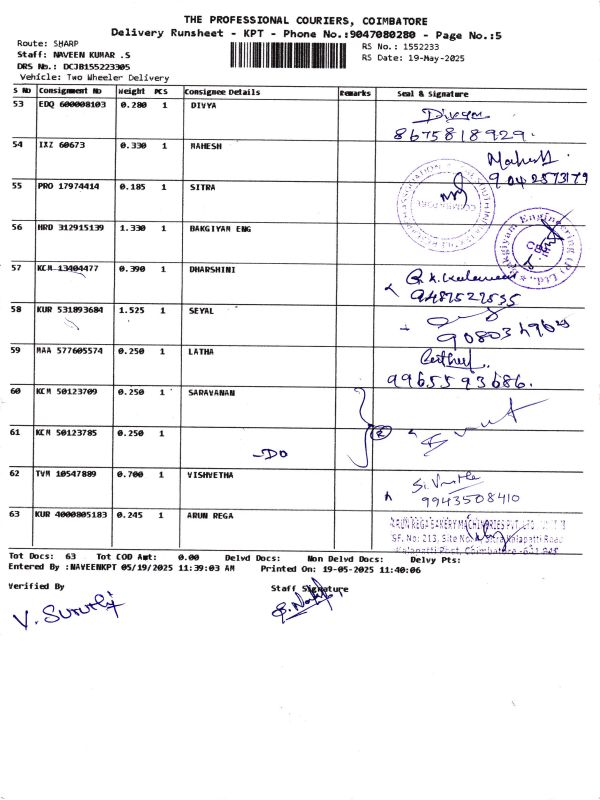 THE PROFESSIONAL COURIERS, COIMBATORE
Delivery Runsheet - KPT - Phone No.:9047080280 - Page No.:5
Route: SHARP
Staff: NAVEEN KUMAR .S
DRS No.: DCJB155223305
Vehicle: Two Wheeler Delivery
RS No.: 1552233
RS Date: 19-May-2025
S No Consignment No Weight PCS Consignee Details Remarks Seal & Signature
53 EDQ 600008103 0.280 1 DIVYA Divya
8675818929.
54 IXZ 60673 0.330 1 MAHESH Mahesh
9042573179
55 PRO 17974414 0.185 1 SITRA
COIMBATORE
56 HRD 312915139 1.330 1 BAKGIYAM ENG
Bakgiyam Engineering (P) Ltd.,
57 KCM 13404477 0.390 1 DHARSHINI
9487527535
58 KUR 531893684 1.525 1 SEYAL
59 MAA 577605574 0.250 1 LATHA
9965593686.
60 KCM 50123709 0.250 1 SARAVANAN
61 KCM 50123785 0.250 1
-DO
62 TVM 10547889 0.700 1 VISHVETHA
9943508410
63 KUR 4000805183 0.245 1 ARUN REGA
ARUN REGA BAKERY MACHINERIES PVT. LTD.
SF. No: 213, Site No. Sitra Kalapatti Road
Kalapatti Post, Coimbatore -641 048
Tot Docs: 63 Tot COD Amt: 0.00 Delvd Docs: Non Delvd Docs: Delvy Pts:
Entered By :NAVEENKPT 05/19/2025 11:39:03 AM Printed On: 19-05-2025 11:40:06
Verified By Staff Signature